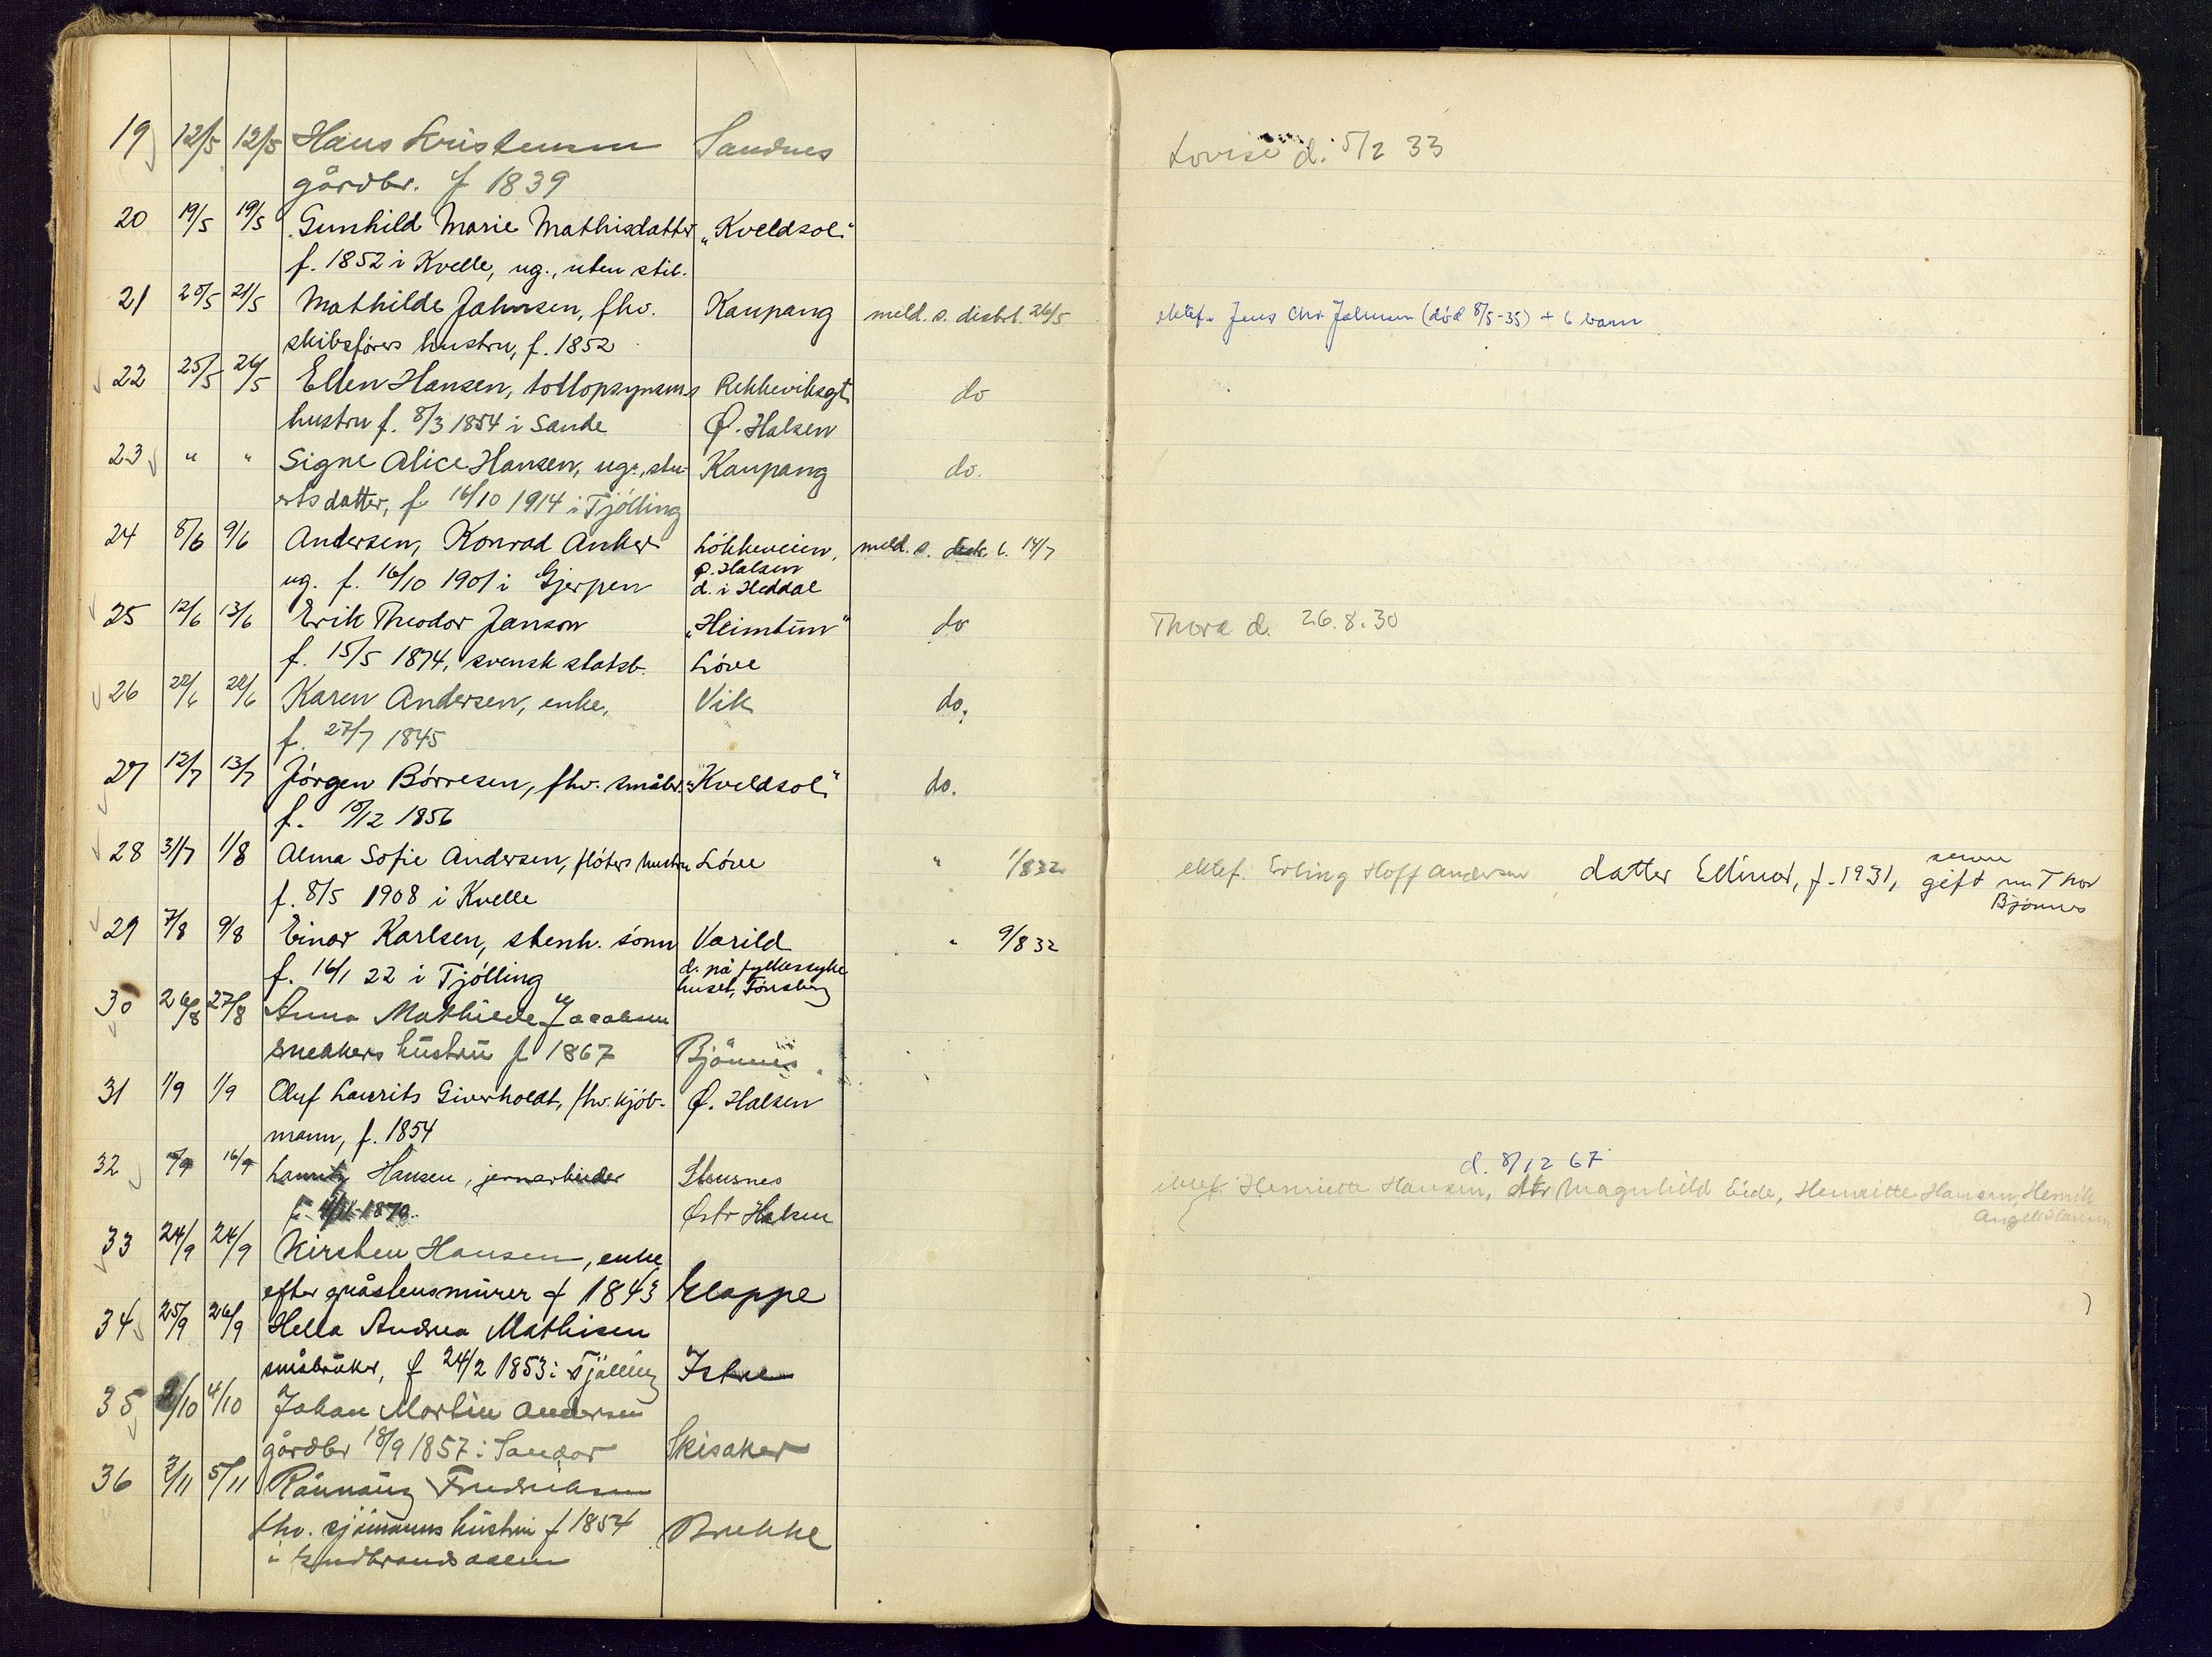 19 12/5 12/5 Hans Kristensen Sandnes
gårdbr. f 1839
Lovise d. 5/2 33
20 19/5 19/5 Gunhild Marie Mathisdatter "Kveldsol"
f. 1852 i Kvelle, ug., uten stil.
21 20/5 21/5 Mathilde Jahnsen, fhv. Kaupang meld. s. distrl. 26/5
skibsførers hustru, f. 1852
ektef. Jens Chr Jahnsen (død 8/5-35) + 6 barn
22 25/5 26/5 Ellen Hansen, tollopsynsm.s Rekkeviksgt. do
hustru f. 8/3 1854 i Sande Ø. Halsen
23 " " Signe Alice Hansen, ug., stu- Kaupang do.
erts datter, f 16/10 1914 i Tjölling
24 8/6 9/6 Andersen, Konrad Anker Løkkeveien, meld. s. l. 14/7
Ø. Halsen
ug. f. 16/10 1901 i Gjerpen d. i Heddal
25 12/6 13/6 Erik Theodor Janson "Heimtun" do
f. 15/5 1874, svensk statsb. Løve
Thora d. 26.8.30
26 22/6 22/6 Karen Andersen, enke, Vik do.
f. 27/7 1845
27 12/7 13/7 Jørgen Børresen, fhv. småbr. "Kveldsol" do.
f. 10/12 1856
28 31/7 1/8 Alma Sofie Andersen, fløters hustru Løve " 1/8 32
f. 8/5 1908 i Kvelle
ektef. Erling Hoff Andersen datter Ellinor, f. 1931, senere gift m. Thor
Bjønnes
29 7/8 9/8 Einar Karlsen, stenh. sønn Varild " 9/8 32
f. 16/1 22 i Tjølling d. på fylkessyke
huset, Tønsberg
30 26/8 27/8 Anna Mathilde Jacobsen
snekkers hustru f 1867 Bjönnes
31 1/9 1/9 Oluf Laurits Giverholdt, fhv. kjøb- Ø. Halsen
mann, f. 1854
32 16/9 Lauritz Hansen, jernarbeider Stensnes
1879. Østr Halsen
d. 8/12 67
ektef. Henriette Hansen, dtr Magnhild Eide, Henriette Hansen, Henrik
Hansen
33 24/9 24/9 Kirsten Hansen, enke
efter gråstensmurer f 1843 Klappe
34 25/9 26/9 Hella Andrea Mathisen
småbruker, f 24/2 1853 i Tjölling Istre
35 /10 4/10 Johan Martin Andersen
gårdbr 18/9 1857 i Sandar Skisaker
36 2/11 5/11 Rönnaug Fredriksen
fhv. sjömanns hustru f 1854 Brekke
i Gudbrandsdalen